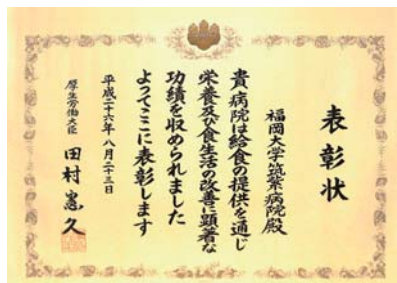 表彰状
福岡大学筑紫病院殿
貴病院は給食の提供を通じ
栄養及び食生活の改善に顕著な
功績を収められました
よってここに表彰します
平成二十六年八月二十三日
厚生労働大臣 田村憲久